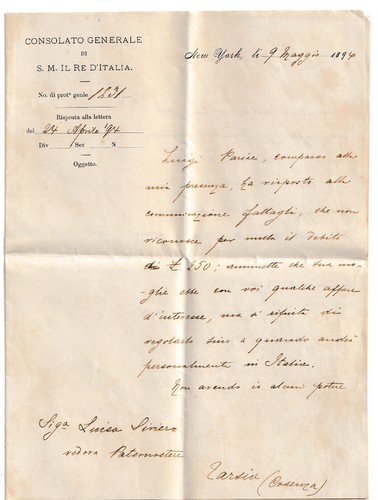 CONSOLATO GENERALE
DI
S. M. IL RE D'ITALIA.
No. di prot° genle 1831
Risposta alla lettera
del 24 Aprile 94
Div Sez N
Oggetto.
New York, li 9 Maggio 1894
Luigi Parise, comparso alla
mia presenza, ha risposto alla
comunicazione fattagli, che non
riconosce per nulla il debito
di £ 250; ammette che sua mo-
glie ebbe con voi qualche affare
d'interesse, ma si rifiuta di
regolarlo sino a quando andrà
personalmente in Italia.
Non avendo io alcun potere
Sigª Luisa Siviero
vedova Paternostere
Tarsia (Cosenza)